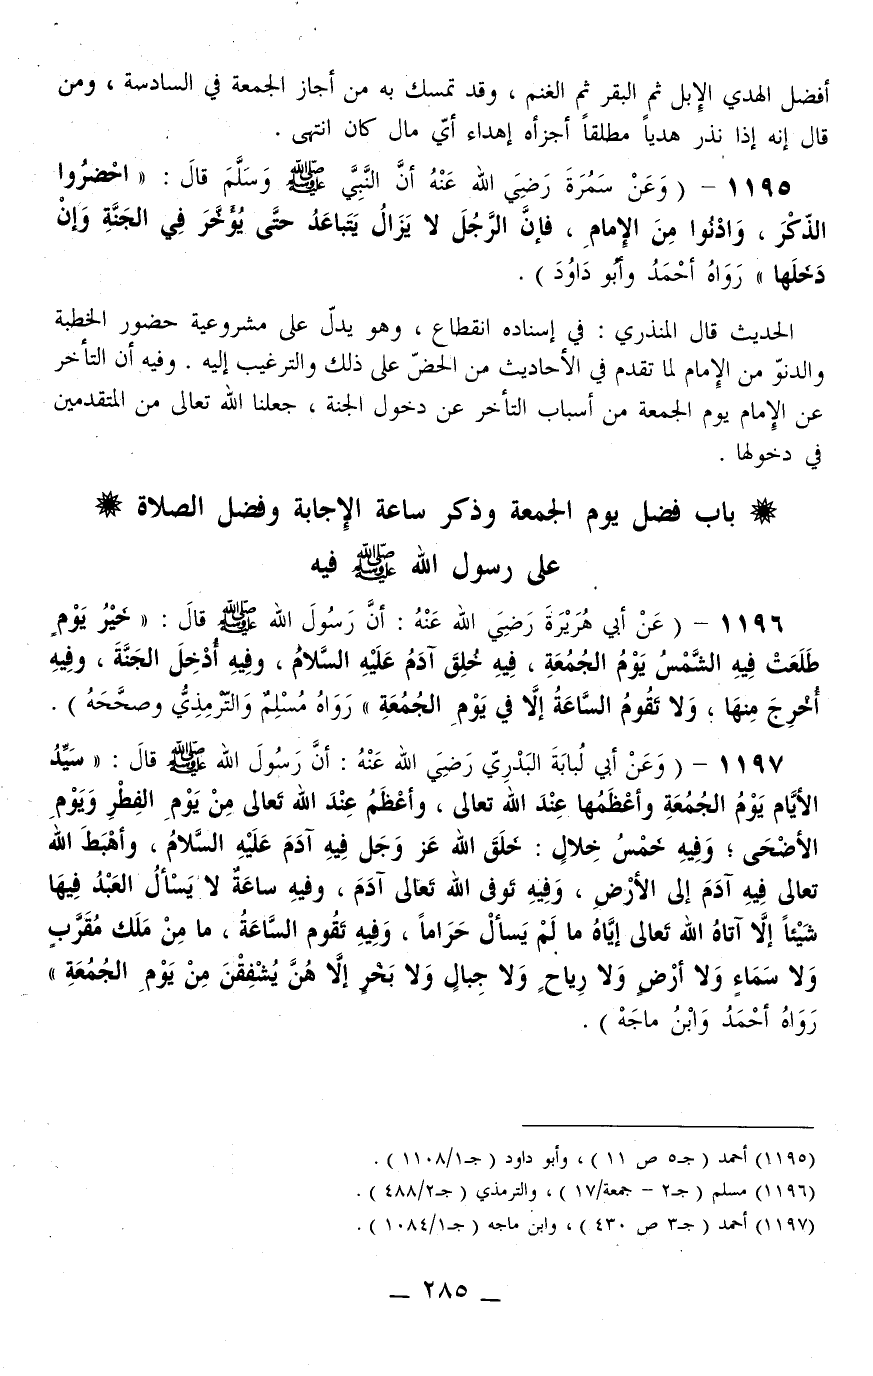 أفضل الهدي الإبل ثم البقر ثم الغنم ، وقد تمسك به من أجاز الجمعة في السادسة ، ومن
قال إنه إذا نذر هدياً مطلقاً أجزأه إهداء أيّ مال كان انتهى .
١١٩٥ – ( وَعَنْ سَمُرَةَ رَضِيَ الله عَنْهُ أنَّ النَّبِيَّ ﷺ وَسَلَّمَ قالَ : « احْضرُوا
الذّكْرَ ، وَادْنُوا مِنَ الإِمامِ ، فإنَّ الرَّجُلَ لا يَزَالُ يَتَباعَدُ حتَّى يُؤَخَّرَ فِي الجَنَّةِ وَإنْ
دَخَلَها » رَوَاهُ أحْمَدُ وأبُو دَاوُدَ ) .
الحديث قال المنذري : في إسناده انقطاع ، وهو يدلّ على مشروعية حضور الخطبة
والدنوّ من الإِمام لما تقدم في الأحاديث من الحضّ على ذلك والترغيب إليه . وفيه أن التأخر
عن الإِمام يوم الجمعة من أسباب التأخر عن دخول الجنة ، جعلنا الله تعالى من المتقدمين
في دخولها .
❋ باب فضل يوم الجمعة وذكر ساعة الإجابة وفضل الصلاة ❋
على رسول الله ﷺ فيه
١١٩٦ – ( عَنْ أبي هُرَيْرَةَ رَضِيَ الله عَنْهُ : أنَّ رَسُولَ الله ﷺ قالَ : « خَيْرُ يَوْمٍ
طَلَعَتْ فِيهِ الشَّمْسُ يَوْمُ الجُمُعَةِ ، فِيهِ خُلِقَ آدَمُ عَلَيْهِ السَّلامُ ، وفِيهِ أُدْخِلَ الجَنَّةَ ، وفِيهِ
أُخْرِجَ مِنهَا ، وَلا تَقُومُ السَّاعَةُ إلَّا في يَوْمِ الجُمُعَةِ » رَوَاهُ مُسْلِمٌ وَالتّرْمِذِيُّ وصحَّحَهُ ) .
١١٩٧ – ( وَعَنْ أبي لُبابَةَ البَدْرِيّ رَضِيَ الله عَنْهُ : أنَّ رَسُولَ الله ﷺ قالَ : « سَيِّدُ
الأيَّامِ يَوْمُ الجُمُعَةِ وأعْظَمُها عِنْدَ الله تعالى ، وأعْظَمُ عِنْدَ الله تَعالى مِنْ يَوْمِ الفِطْرِ وَيَوْمِ
الأضْحَى ؛ وَفِيهِ خَمْسُ خِلالٍ : خَلَقَ الله عَز وَجَل فِيهِ آدَمَ عَلَيْهِ السَّلامُ ، وأهْبَطَ الله
تعالى فِيهِ آدَمَ إلى الأرْضِ ، وَفِيهِ تَوفى الله تَعالى آدَمَ ، وفيهِ ساعَةٌ لا يَسْألُ العَبْدُ فِيهَا
شَيْئاً إلَّا آتاهُ الله تَعالى إيَّاهُ ما لَمْ يَسألْ حَرَاماً ، وَفِيهِ تَقُوم السَّاعَةُ ، ما مِنْ مَلَك مُقَرَّبٍ
وَلا سَمَاءٍ وَلا أرْضٍ وَلا رِياحٍ وَلا جِبالٍ وَلا بَحْرٍ إلَّا هُنَّ يُشْفِقْنَ مِنْ يَوْمِ الجُمُعَةِ »
رَوَاهُ أحْمَدُ وَابْنُ ماجَهْ ) .
(١١٩٥) أحمد ( جـ٥ ص ١١ ) ، وأبو داود ( جـ١/١١٠٨ ) .
(١١٩٦) مسلم ( جـ٢ – جمعة/١٧ ) ، والترمذي ( جـ٢/٤٨٨ ) .
(١١٩٧) أحمد ( جـ٣ ص ٤٣٠ ) ، وابن ماجه ( جـ١/١٠٨٤ ) .
— ٢٨٥ —